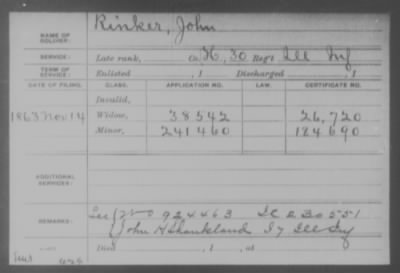 NAME OF SOLDIER: Rinker, John
SERVICE: Late rank, Co. H, 30 Reg't Ill Inf
TERM OF SERVICE: Enlisted , 1 Discharged , 1
DATE OF FILING. CLASS. APPLICATION NO. LAW. CERTIFICATE NO.
Invalid,
1863 Nov 14 Widow, 38542 26,720
Minor, 241460 184690
ADDITIONAL SERVICES:
REMARKS: See WO 924463 SC 230551
John H Shankland I 7 Ill Inf
Died , 1 , at